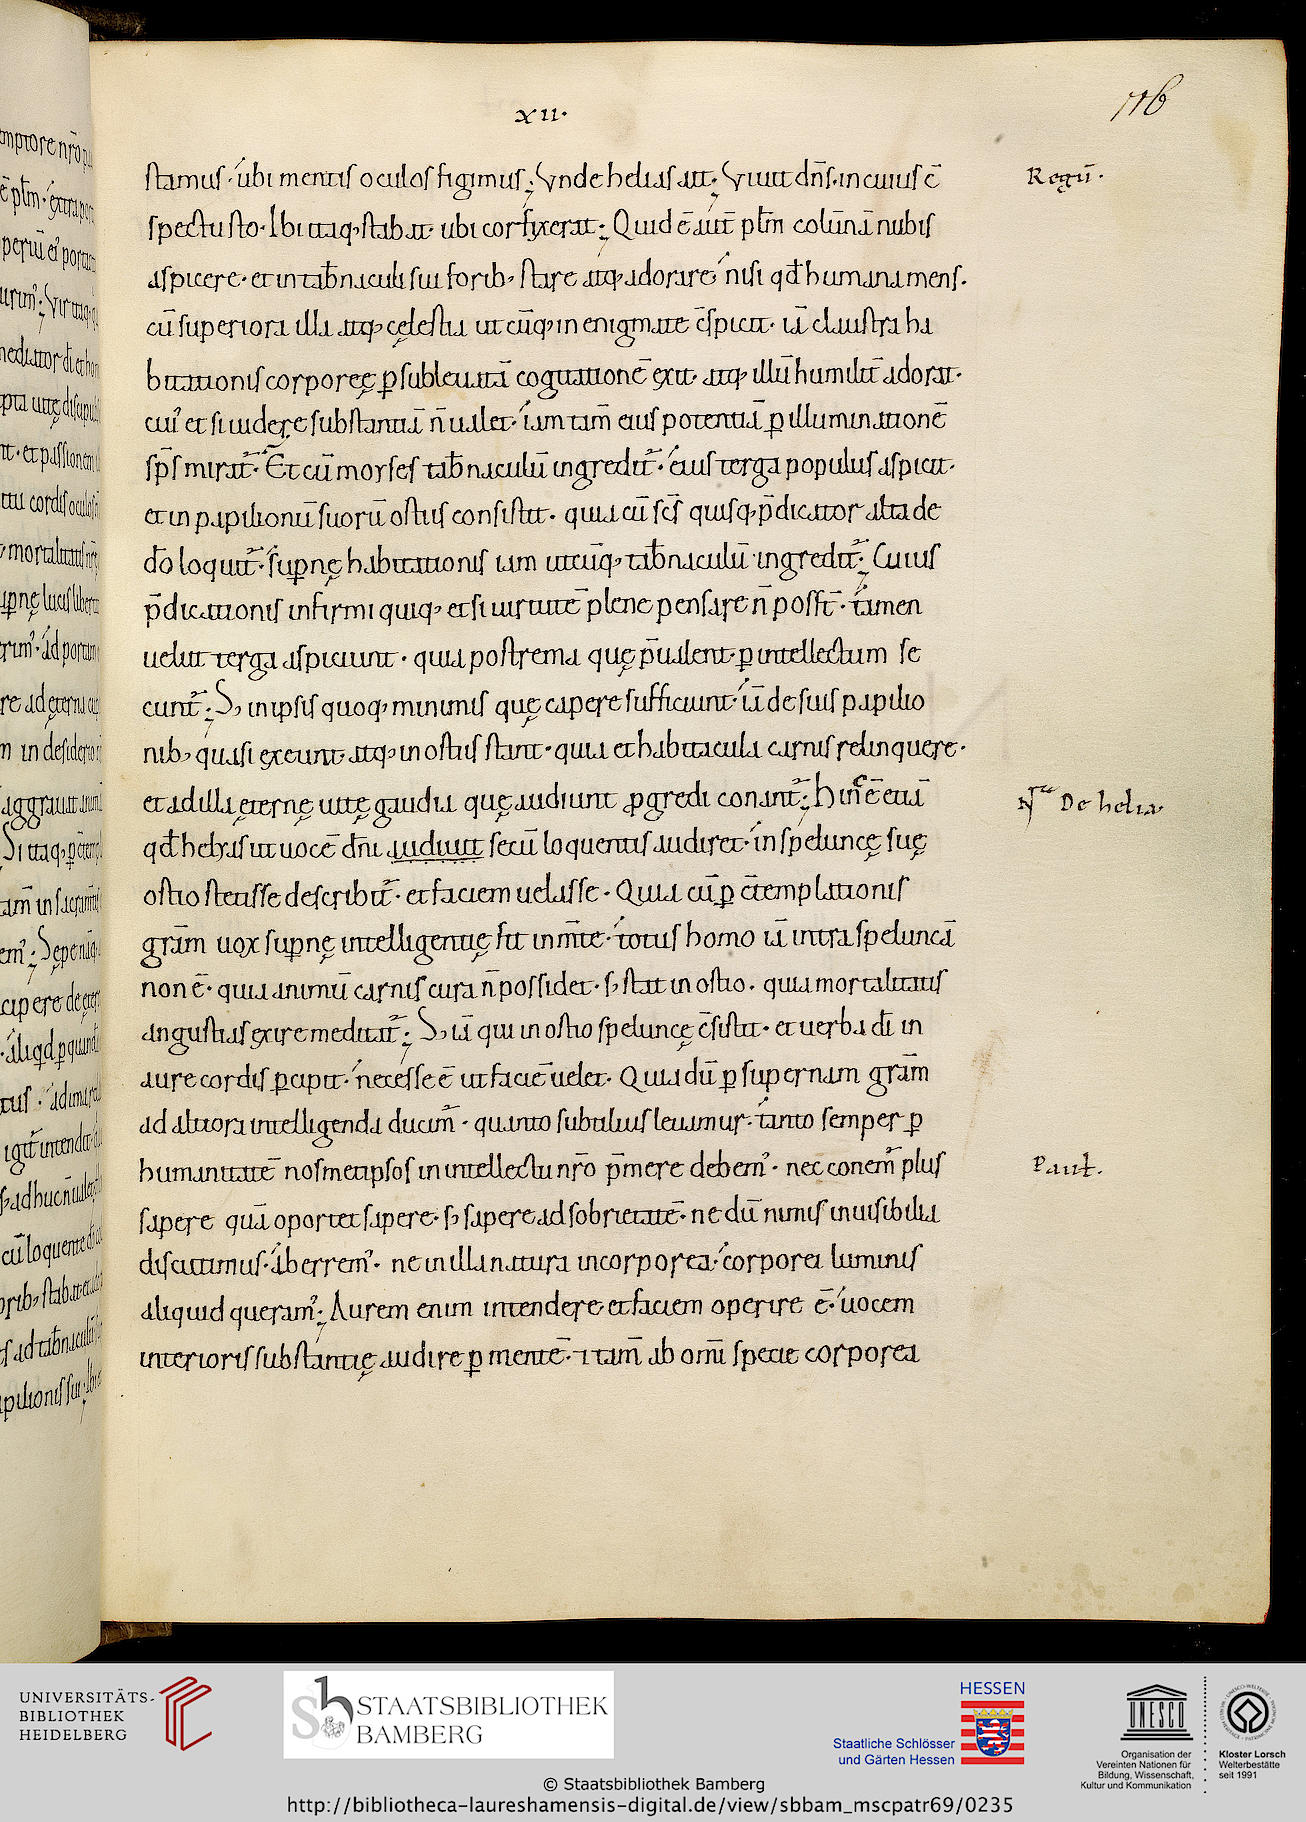 xıı·
116
stamus· ubi mentis oculos figimus; Vnde helias ait; Viuit dn̄s· in cuius c̄
Regū·
spectu sto· Ibi itaq; stabat ubi cor fixerat; Quid ē aut̄ pl̄m colūnā nubis
aspicere· et in tab̄naculi sui forib; stare atq; adorare· nisi qd̄ humana mens·
cū superiora illa atq; cęlestia ut cūq; in enigmate c̄spicit· iā claustra ha
bitationis corporeę p̱ subleuatā cogitationē exit· atq; illū humilit̄ adorat·
cui᾽ et si uidere substantiā n̄ ualet· iam tam̄ eius potentiā p̱ illuminationē
sp̄s mirat᷑· Et cū moyses tab̄naculū ingredit᷑· eius terga populus aspicit·
et in papilionū suorū ostiis consistit· quia cū sc̄s quisq; p̄dicator alta de
dō loquit᷑· sup̱nę habitationis iam utcūq; tab̄naculū ingredit᷑; Cuius
p̄dicationis infirmi quiq; etsi uirtutē plene pensare n̄ posst̄· tamen
uelut terga aspiciunt· quia postrema quę p̄ualent p̱ intellectum se
cunt᷑; S; in ipsis quoq; minimis quę capere sufficiunt· iā de suis papilio
nib; quasi exeunt atq; in ostiis stant· quia et habitacula carnis relinquere·
et ad illa ęternę uitę gaudia quę audiunt ꝓgredi conant᷑; Hinc ē etiā
N̄ De helia·
qd̄ helyas ut uocē dn̄i audiuit secū loquentis audiret· in spelunce̜ suę
ostio stetisse describit᷑· et faciem uelasse· Quia cū p̱ c̄templationis
grām uox sup̱nę intelligentię fit in m̄te· totus homo iā intra speluncā
non ē· quia animū carnis cura n̄ possidet· s; stat in ostio· quia mortalitatis
angustias exire meditat᷑; S; iā qui in ostio speluncę c̄sistit· et uerba dī in
aure cordis p̱cipit· necesse ē ut faciē uelet· Quia dū p̱ supernam grām
ad altiora intelligenda ducim᷑· quanto subtilius leuamur· tanto semper p̱
humanitatē nosmetipsos in intellectu nr̄o p̄mere debem᾽· nec conem᷑ plus
Paul̄·
sapere quā oportet sapere· s; sapere ad sobrietatē· ne dū nimis inuisibilia
discutimus· aberrem᾽· ne in illa natura incorporea· corporei luminis
aliquid queram᾽; Aurem enim intendere et faciem operire ē· uocem
interioris substantię audire p̱ mentē· ⁊ tam̄ ab omī specie corporea
UNIVERSITÄTS-
BIBLIOTHEK
HEIDELBERG
STAATSBIBLIOTHEK
BAMBERG
HESSEN
Staatliche Schlösser
und Gärten Hessen
UNESCO
Organisation der
Vereinten Nationen für
Bildung, Wissenschaft,
Kultur und Kommunikation
Kloster Lorsch
Welterbestätte
seit 1991
© Staatsbibliothek Bamberg
http://bibliotheca-laureshamensis-digital.de/view/sbbam_mscpatr69/0235